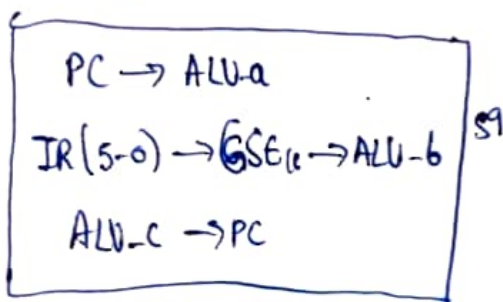 PC → ALU-a
IR(5-0) → 6SE16 → ALU-b
ALU-C → PC
S9